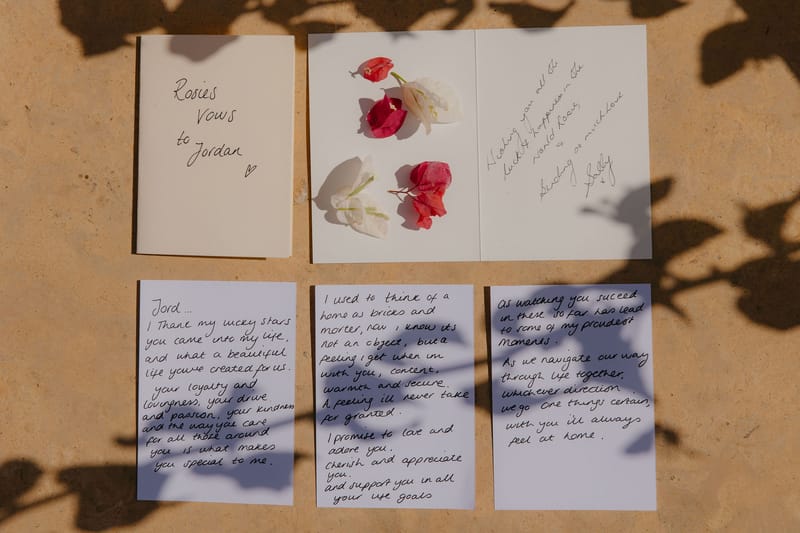 Rosies
Vows
to
Jordan
Wishing you all the
luck & happiness in the
world Rosie,
Sending so much love
Sally
Jord...
I Thank my lucky stars
you came into my life,
and what a beautiful
life you've created for us.
your loyalty and
lovingness, your drive
and passion, your kindness
and the way you care
for all those around
you is what makes
you special to me.
I used to think of a
home as bricks and
morter, now i know its
not an object, but a
feeling i get when im
with you, content,
warmth and secure.
A feeling ill never take
for granted.
I promise to love and
adore you.
cherish and appreciate
you.
and support you in all
your life goals
As watching you succeed
in these so far has lead
to some of my proudest
moments.
As we navigate our way
through life together,
whichever direction
we go one things certain,
with you i'll always
feel at home.